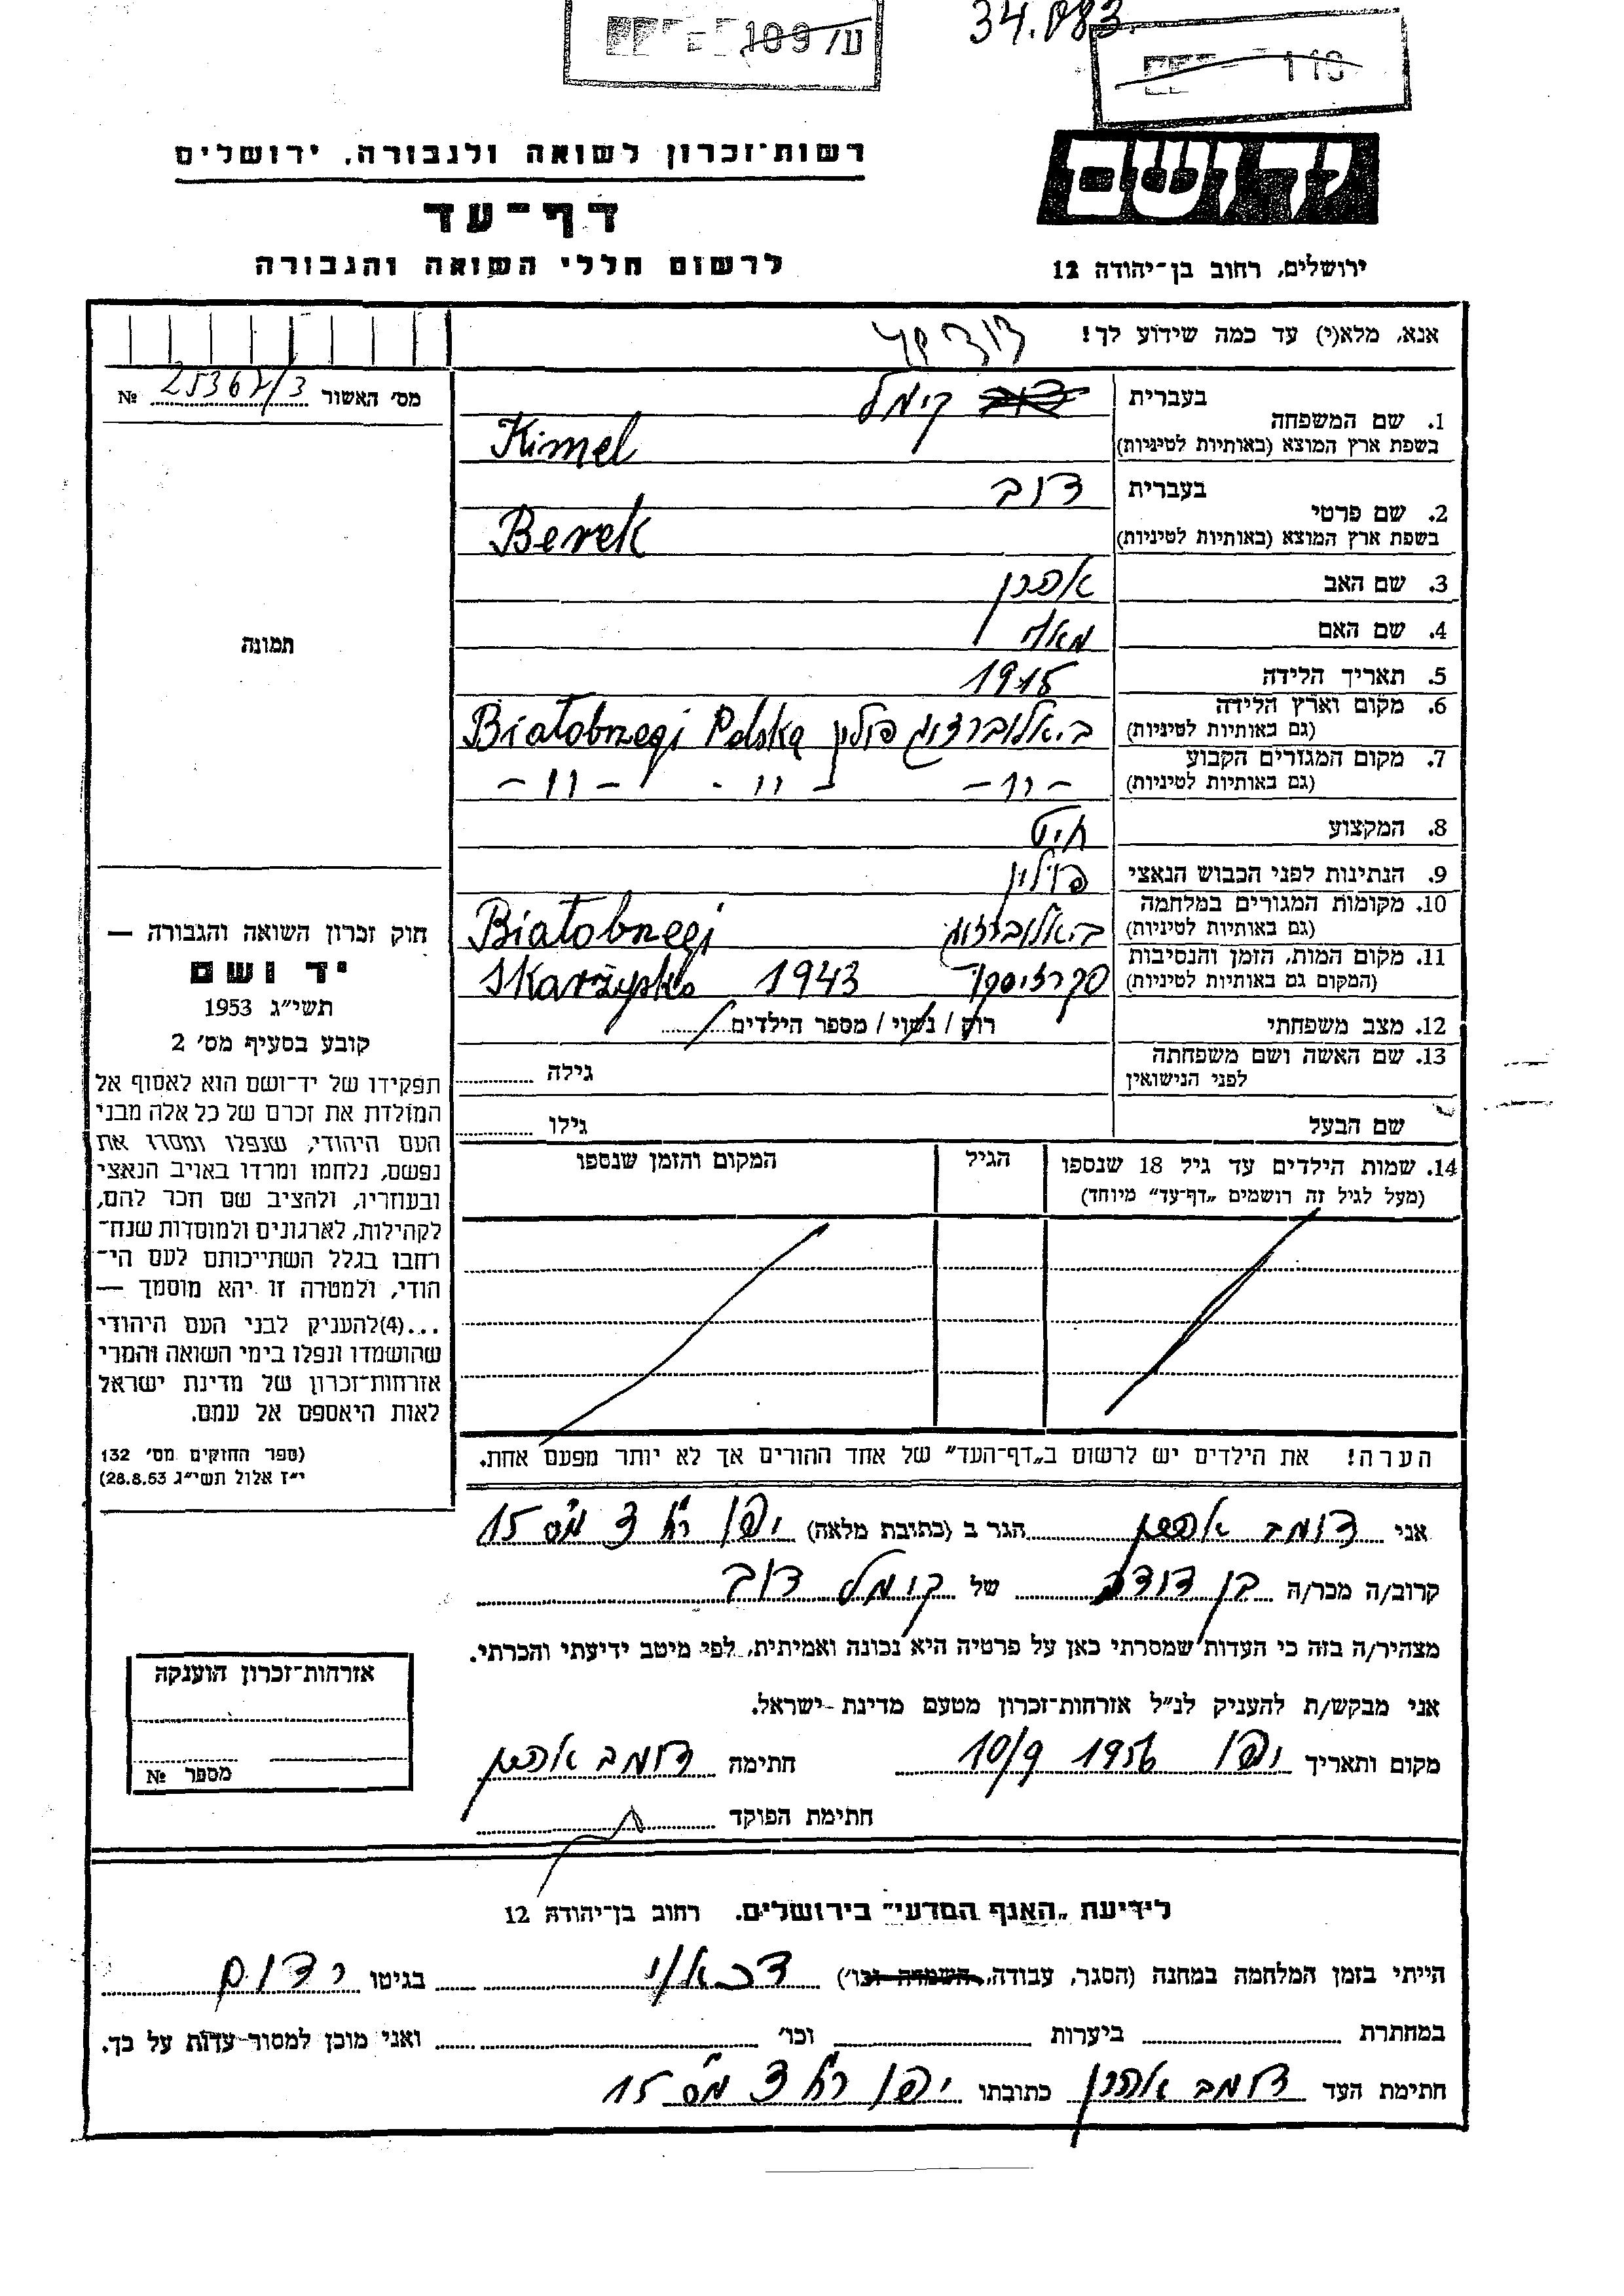 ע/109
34.083
110
רשות־זכרון לשואה ולגבורה, ירושלים
יד ושם
דף־עד
לרשום חללי השואה והגבורה
ירושלים, רחוב בן־יהודה 12
אנא, מלא(י) עד כמה שידוע לך!
מס׳ האשור 25367/3 №
1. שם המשפחה
בעברית קימל
בשפת ארץ המוצא (באותיות לטיניות) Kimel
2. שם פרטי
בעברית דוב
בשפת ארץ המוצא (באותיות לטיניות) Berek
3. שם האב אהרן
4. שם האם
5. תאריך הלידה 1915
6. מקום וארץ הלידה
(גם באותיות לטיניות) ביאלוברזגי פולין Białobrzegi Polska
7. מקום המגורים הקבוע
(גם באותיות לטיניות) –״– –״– –״–
8. המקצוע חיט
9. הנתינות לפני הכבוש הנאצי פולין
10. מקומות המגורים במלחמה
(גם באותיות לטיניות) ביאלוברזגי Białobrzegi
11. מקום המות, הזמן והנסיבות
(המקום גם באותיות לטיניות) סקרזיסקו 1943 Skarżysko
12. מצב משפחתי רווק / נשוי / מספר הילדים
13. שם האשה ושם משפחתה
לפני הנישואין גילה
שם הבעל גילו
14. שמות הילדים עד גיל 18 שנספו הגיל המקום והזמן שנספו
(מעל לגיל זה רושמים „דף־עד״ מיוחד)
הערה! את הילדים יש לרשום ב„דף־העד״ של אחד ההורים אך לא יותר מפעם אחת.
תמונה
חוק זכרון השואה והגבורה —
יד ושם
תשי״ג 1953
קובע בסעיף מס׳ 2
תפקידו של יד־ושם הוא לאסוף אל
המולדת את זכרם של כל אלה מבני
העם היהודי, שנפלו ומסרו את
נפשם, נלחמו ומרדו באויב הנאצי
ובעוזריו, ולהציב שם וזכר להם,
לקהילות, לארגונים ולמוסדות שנח־
רבו בגלל השתייכותם לעם הי־
הודי, ולמטרה זו יהא מוסמך —
...(4)להעניק לבני העם היהודי
שהושמדו ונפלו בימי השואה והמרי
אזרחות־זכרון של מדינת ישראל
לאות היאספם אל עמם.
(ספר החוקים מס׳ 132
י״ז אלול תשי״ג 28.8.53)
אני דומב אהרן הגר ב (כתובת מלאה) יפו רח׳ 3 מס׳ 15
קרוב/ה מכר/ה בן דודה של קימל דוב
מצהיר/ה בזה כי העדות שמסרתי כאן על פרטיה היא נכונה ואמיתית, לפי מיטב ידיעתי והכרתי.
אני מבקש/ת להעניק לנ״ל אזרחות־זכרון מטעם מדינת ישראל.
מקום ותאריך יפו 1956 10/9 חתימה דומב אהרן
חתימת הפוקד
אזרחות־זכרון הוענקה
מספר №
לידיעת „האגף המדעי״ בירושלים. רחוב בן־יהודה 12
הייתי בזמן המלחמה במחנה (הסגר, עבודה, השמדה וכו׳) דכאו בגיטו רדום
במחתרת ביערות וכו׳ ואני מוכן למסור עדות על כך.
חתימת העד דומב אהרן כתובתו יפו רח׳ 3 מס׳ 15